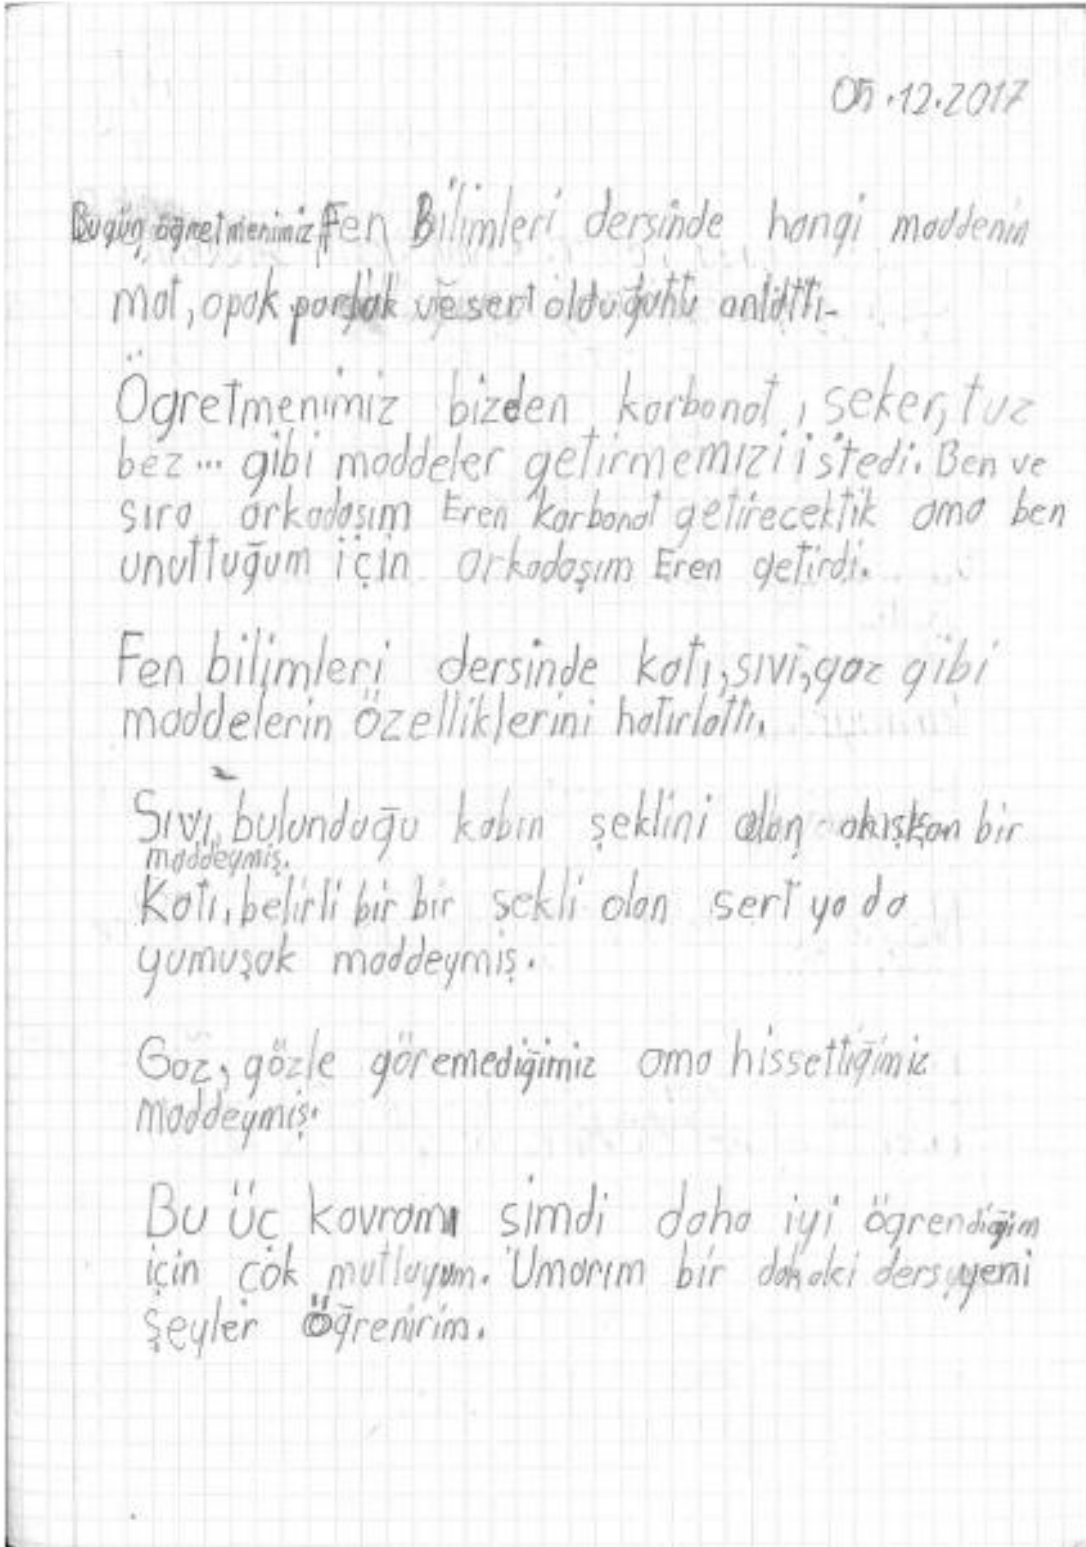 05.12.2017
Bugün öğretmenimiz Fen Bilimleri dersinde hangi maddenin
mat, opak parlak ve sert olduğunu anlattı.
Ögretmenimiz bizden karbonat, şeker, tuz
bez... gibi maddeler getirmemizi istedi. Ben ve
sıra arkadaşım Eren karbonat getirecektik ama ben
unuttuğum için arkadaşım Eren getirdi.
Fen bilimleri dersinde katı, sıvı, gaz gibi
maddelerin özelliklerini hatırlattı.
Sıvı, bulunduğu kabın şeklini alan akışkan bir
maddeymiş.
Katı, belirli bir bir şekli olan sert ya da
yumuşak maddeymiş.
Gaz, gözle göremediğimiz ama hissettiğimiz
maddeymiş.
Bu üç kavramı şimdi daha iyi öğrendiğim
için çok mutluyum. Umarım bir dahaki ders yeni
şeyler öğrenirim.